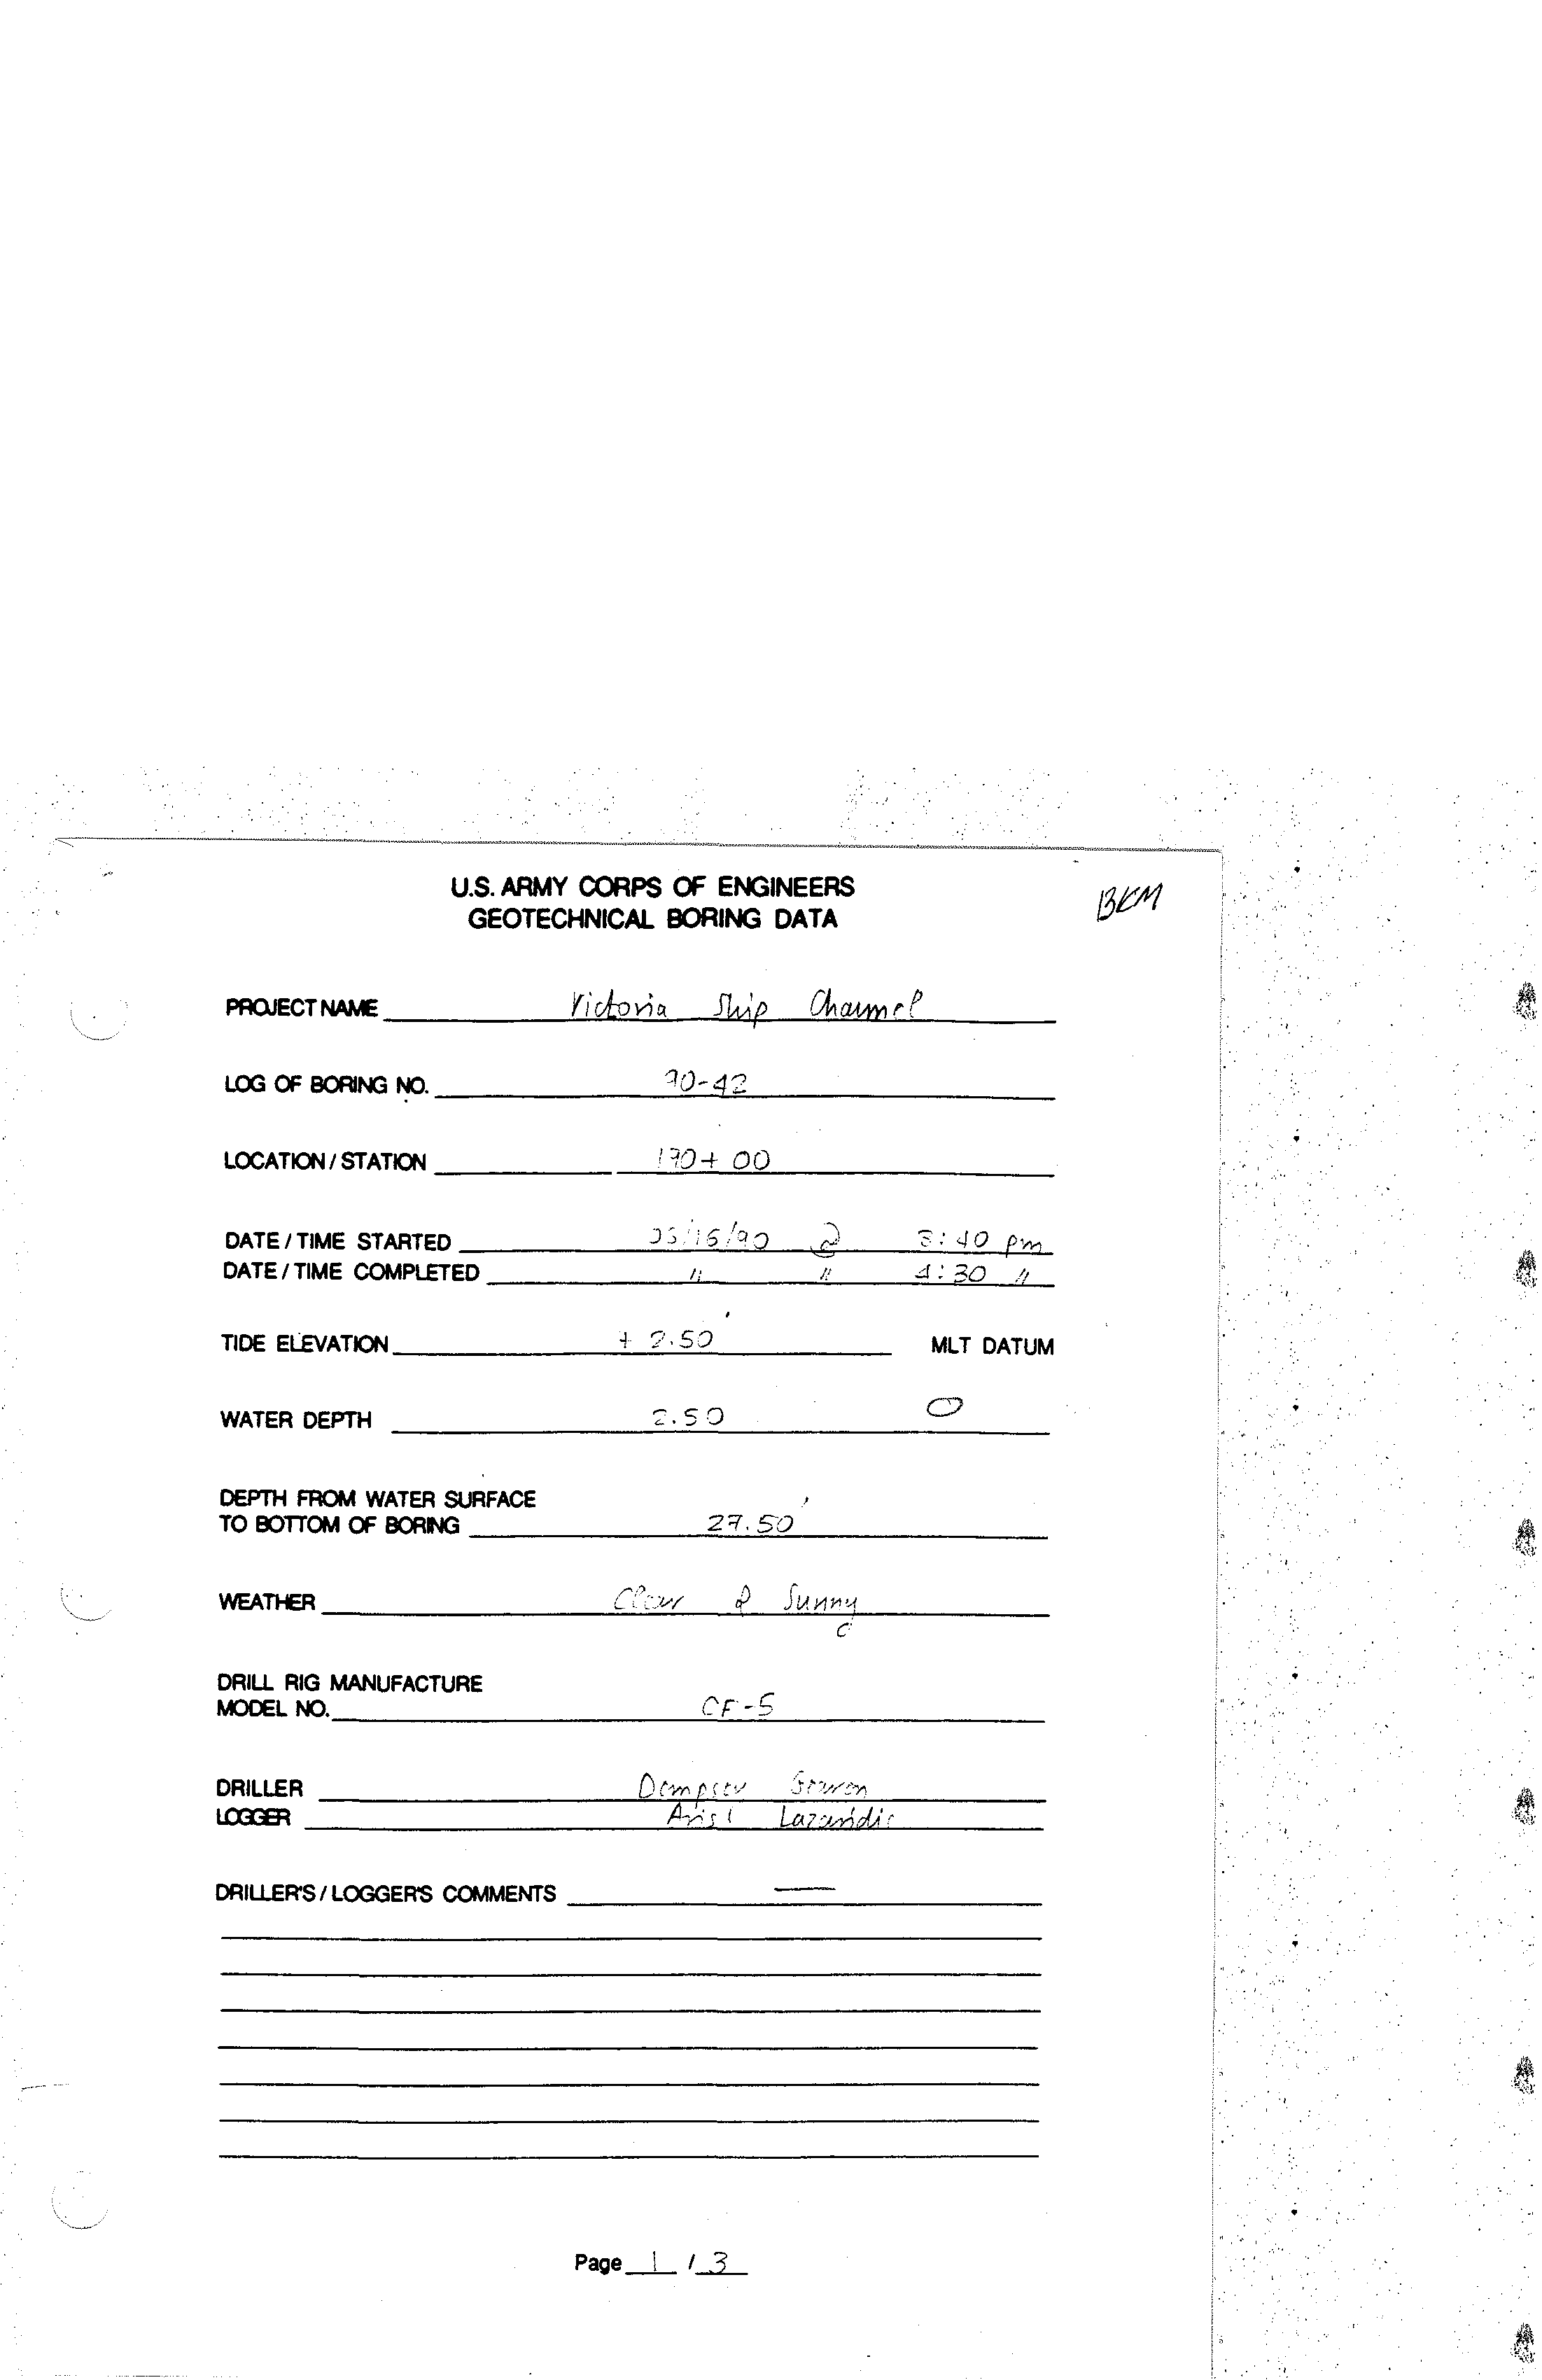 U.S. ARMY CORPS OF ENGINEERS
GEOTECHNICAL BORING DATA
BKM
PROJECT NAME Victoria Ship Channel
LOG OF BORING NO. 90-42
LOCATION / STATION 190+00
DATE / TIME STARTED 05/16/90 @ 3:40 pm
DATE / TIME COMPLETED " " 4:30 "
TIDE ELEVATION + 2.50' MLT DATUM
WATER DEPTH 2.50 0
DEPTH FROM WATER SURFACE
TO BOTTOM OF BORING 27.50'
WEATHER Clear & Sunny
DRILL RIG MANUFACTURE
MODEL NO. CF-5
DRILLER Dempsey
LOGGER
DRILLER'S / LOGGER'S COMMENTS —
Page 1 / 3